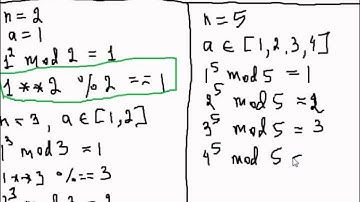 n = 2
a = 1
1² mod 2 = 1
1 ** 2 % 2 == 1
n = 3, a ∈ [1,2]
1³ mod 3 = 1
1 ** 3 % == 3
n = 5
a ∈ [1,2,3,4]
1⁵ mod 5 = 1
2⁵ mod 5 = 2
3⁵ mod 5 = 3
4⁵ mod 5